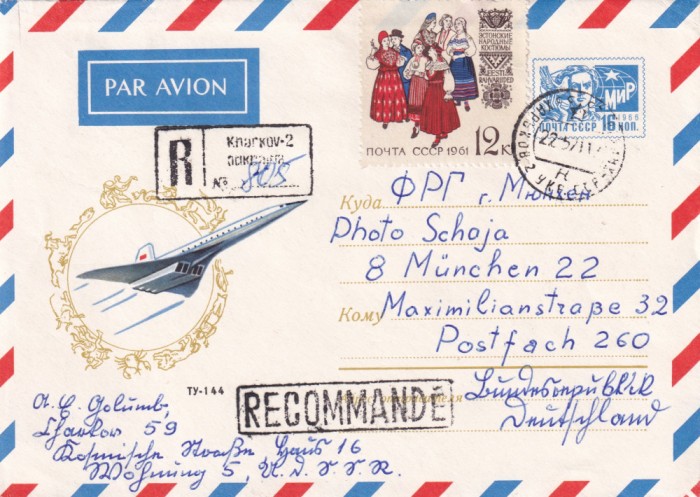 PAR AVION
R
Kharkov-2
№ 805
ЭСТОНСКИЕ
НАРОДНЫЕ
КОСТЮМЫ
EESTI
RAHVARIIDED
ПОЧТА СССР 1961 12 К
МИР
1966
ПОЧТА СССР 16 КОП.
Куда ФРГ г. Мюнхен
Photo Schaja
8 München 22
Кому Maximilianstraße 32
Postfach 260
Bundesrepublik
Deutschland
ТУ-144
RECOMMANDÉ
A. C. Golumb,
Charkov 59
Kosmische Straße, Haus 16
Wohnung 5, U.d.S.S.R.